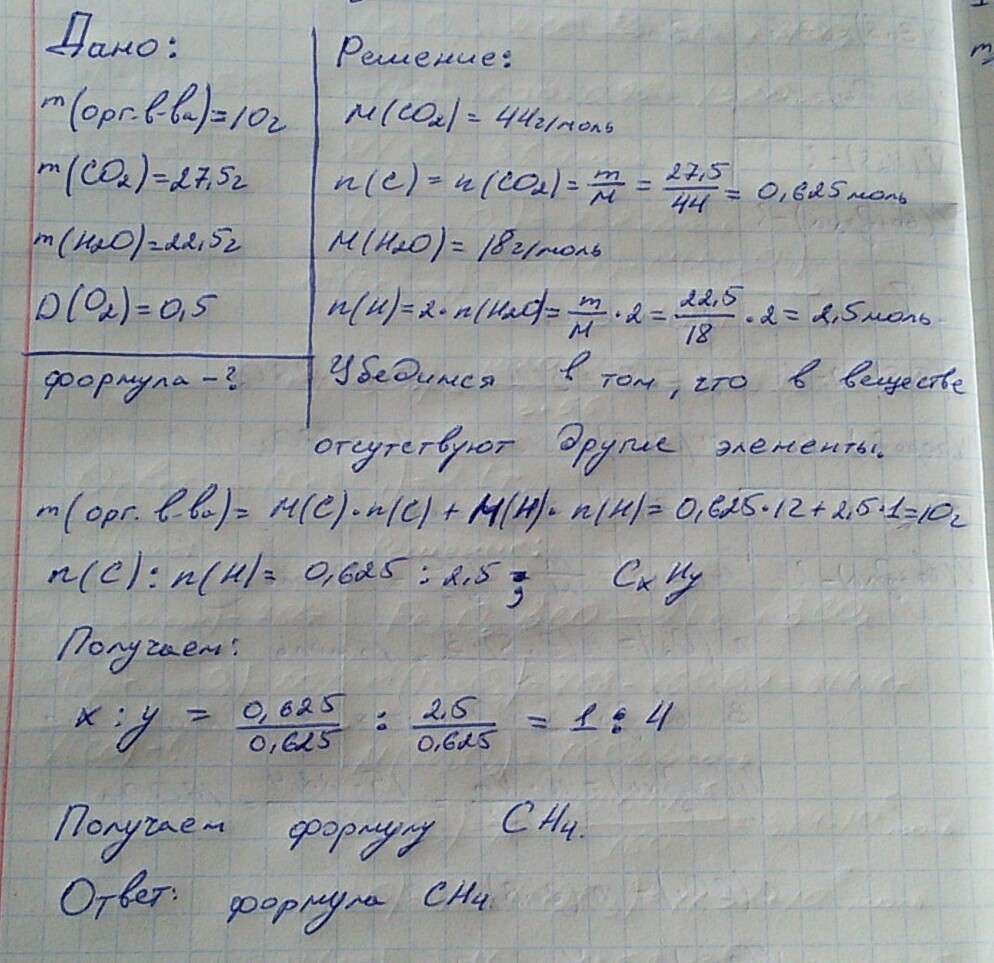 Дано:
m(орг. в-ва)=10г
m(CO₂)=27,5г
m(H₂O)=22,5г
D(O₂)=0,5
формула -?
Решение:
M(CO₂) = 44г/моль
n(C) = n(CO₂) = m/M = 27,5/44 = 0,625 моль
M(H₂O) = 18г/моль
n(H)=2·n(H₂O)= m/M · 2 = 22,5/18 · 2 = 2,5моль
Убедимся в том, что в веществе
отсутствуют другие элементы.
m(орг. в-ва)= M(C)·n(C) + M(H)· n(H)= 0,625·12+2,5·1=10г
n(C) : n(H)= 0,625 : 2,5 ; CxHy
Получаем:
x : y = 0,625/0,625 : 2,5/0,625 = 1 : 4
Получаем формулу CH₄.
Ответ: формула CH₄